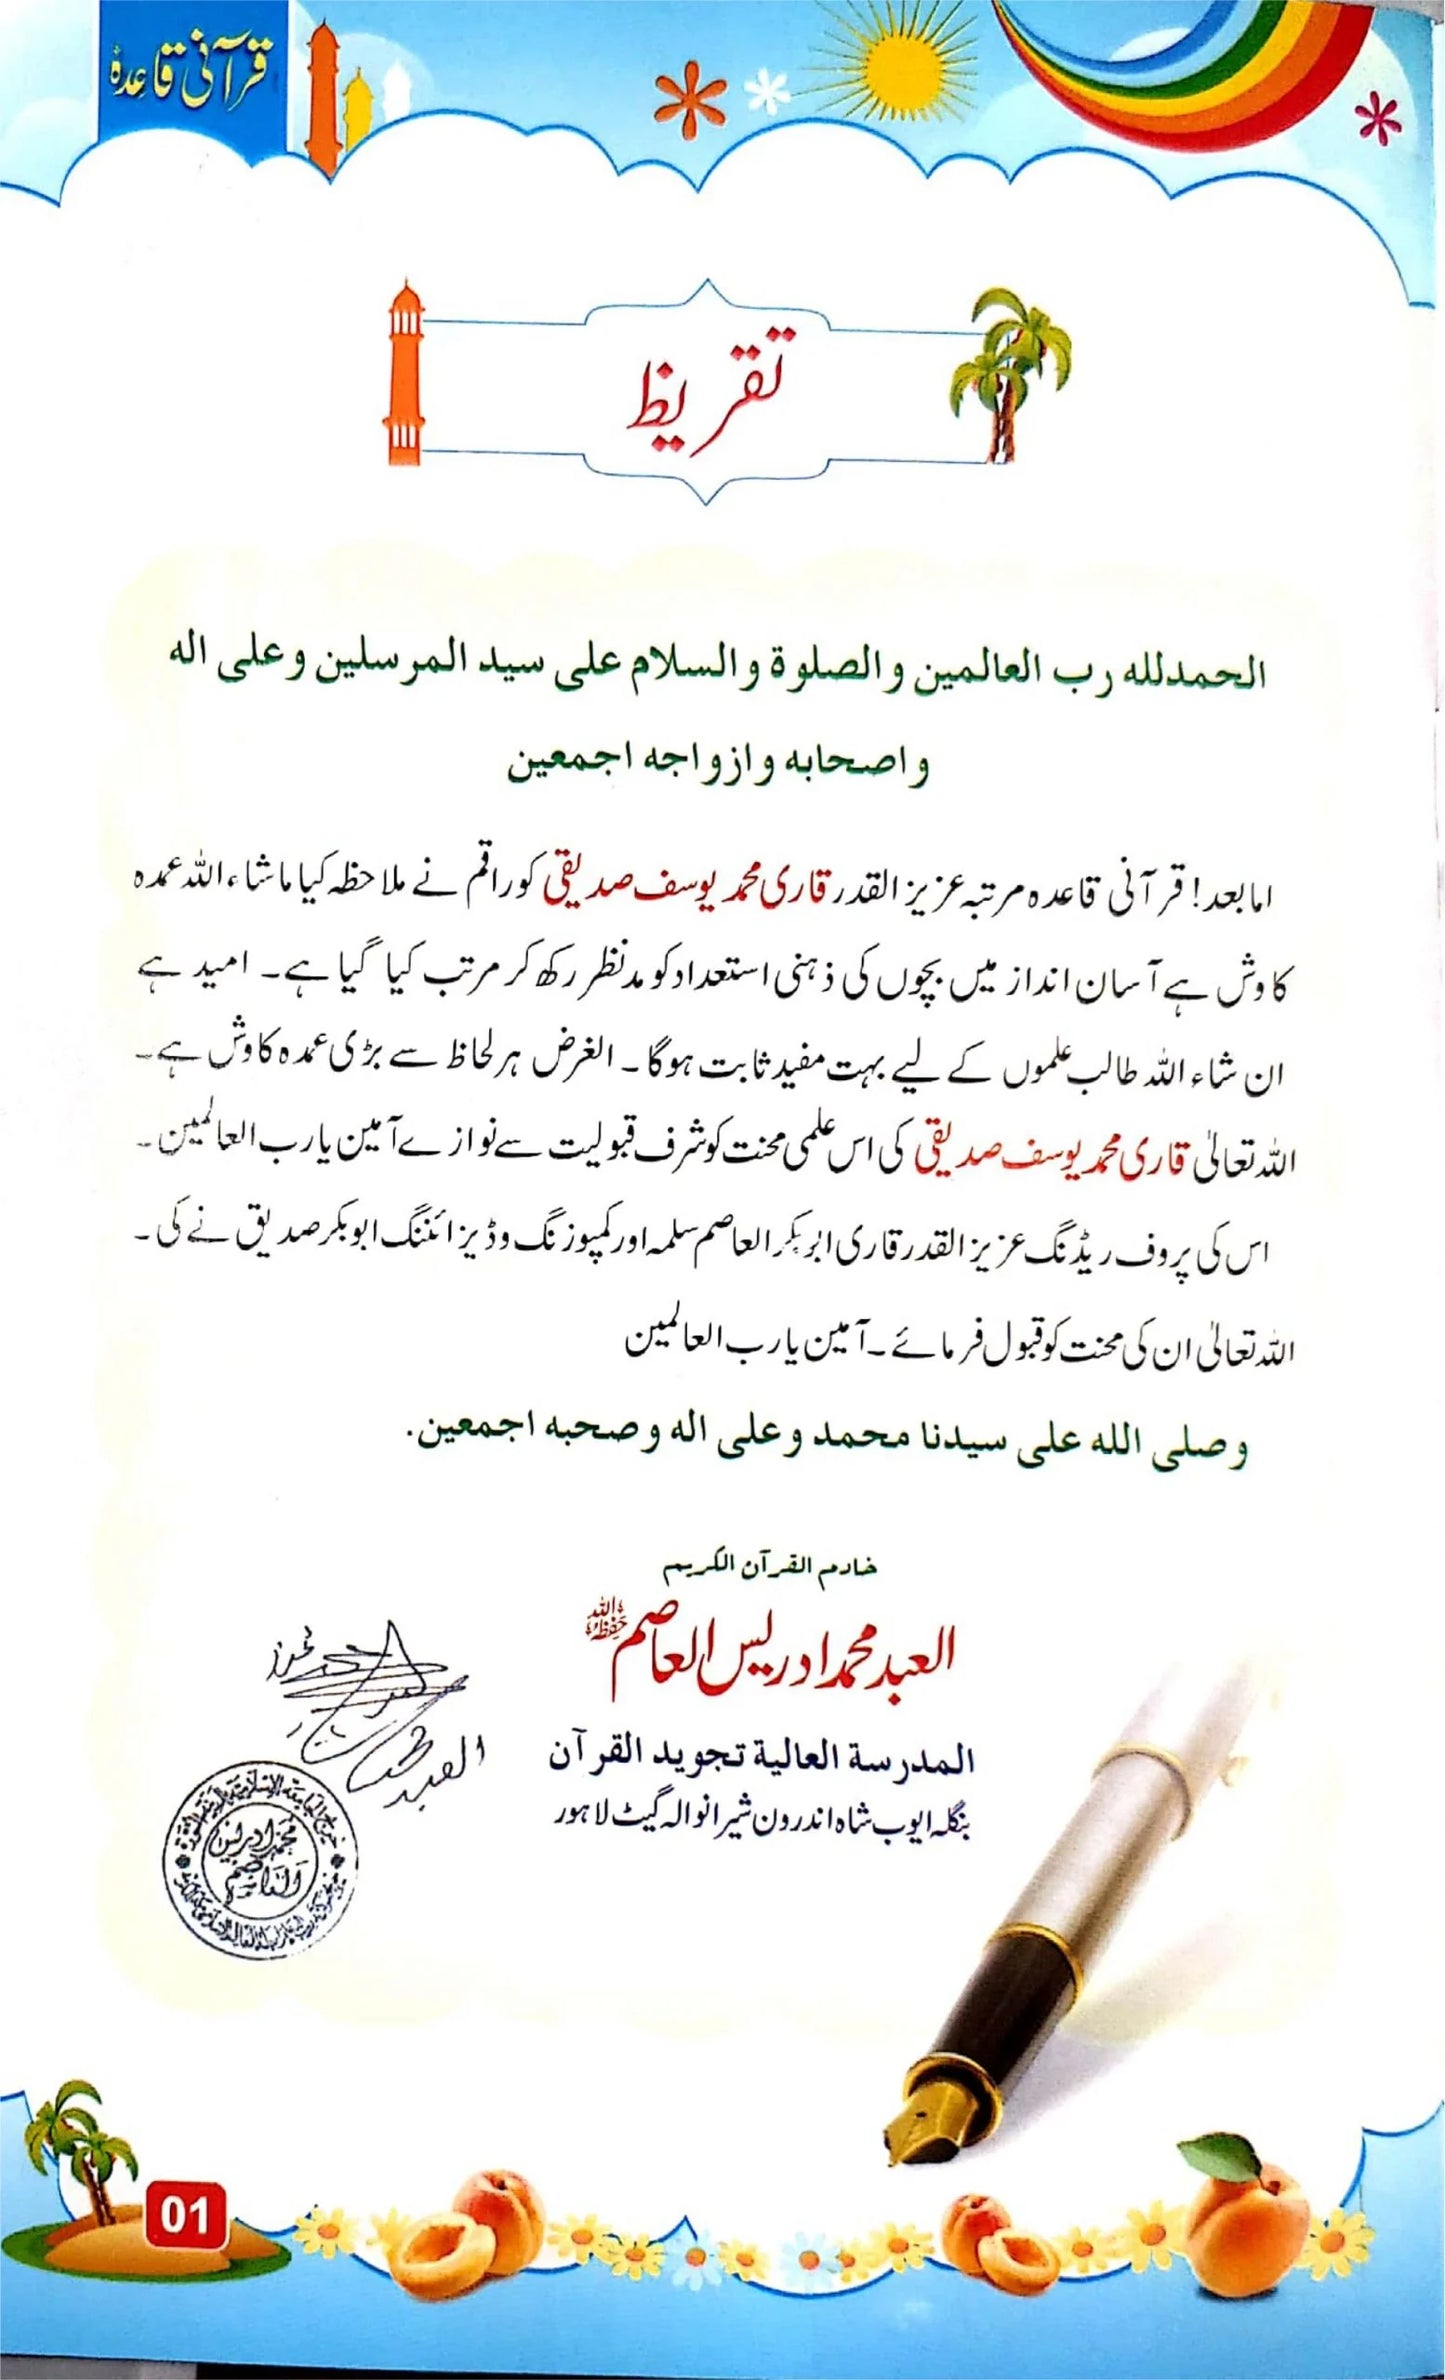 قرآنی قاعدہ
تقریظ
الحمدلله رب العالمين والصلوة والسلام على سيد المرسلين وعلى اله
واصحابه وازواجه اجمعين
اما بعد! قرآنی قاعدہ مرتبہ عزیز القدر قاری محمد یوسف صدیقی کو راقم نے ملاحظہ کیا ماشاء اللہ عمدہ
کاوش ہے آسان انداز میں بچوں کی ذہنی استعداد کو مدنظر رکھ کر مرتب کیا گیا ہے۔ امید ہے
ان شاء اللہ طالب علموں کے لیے بہت مفید ثابت ہوگا۔ الغرض ہر لحاظ سے بڑی عمدہ کاوش ہے۔
اللہ تعالیٰ قاری محمد یوسف صدیقی کی اس علمی محنت کو شرف قبولیت سے نوازے آمین یا رب العالمین۔
اس کی پروف ریڈنگ عزیز القدر قاری ابوبکر العاصم سلمہ اور کمپوزنگ و ڈیزائننگ ابوبکر صدیق نے کی۔
اللہ تعالیٰ ان کی محنت کو قبول فرمائے۔ آمین یا رب العالمین
وصلى الله على سيدنا محمد وعلى اله وصحبه اجمعين.
خادم القرآن الکریم
العبد محمد ادریس العاصم حفظہ اللہ
المدرسة العالية تجويد القرآن
بنگلہ ایوب شاہ اندرون شیرانوالہ گیٹ لاہور
العبد محمد
محمد ادریس
العاصم
01